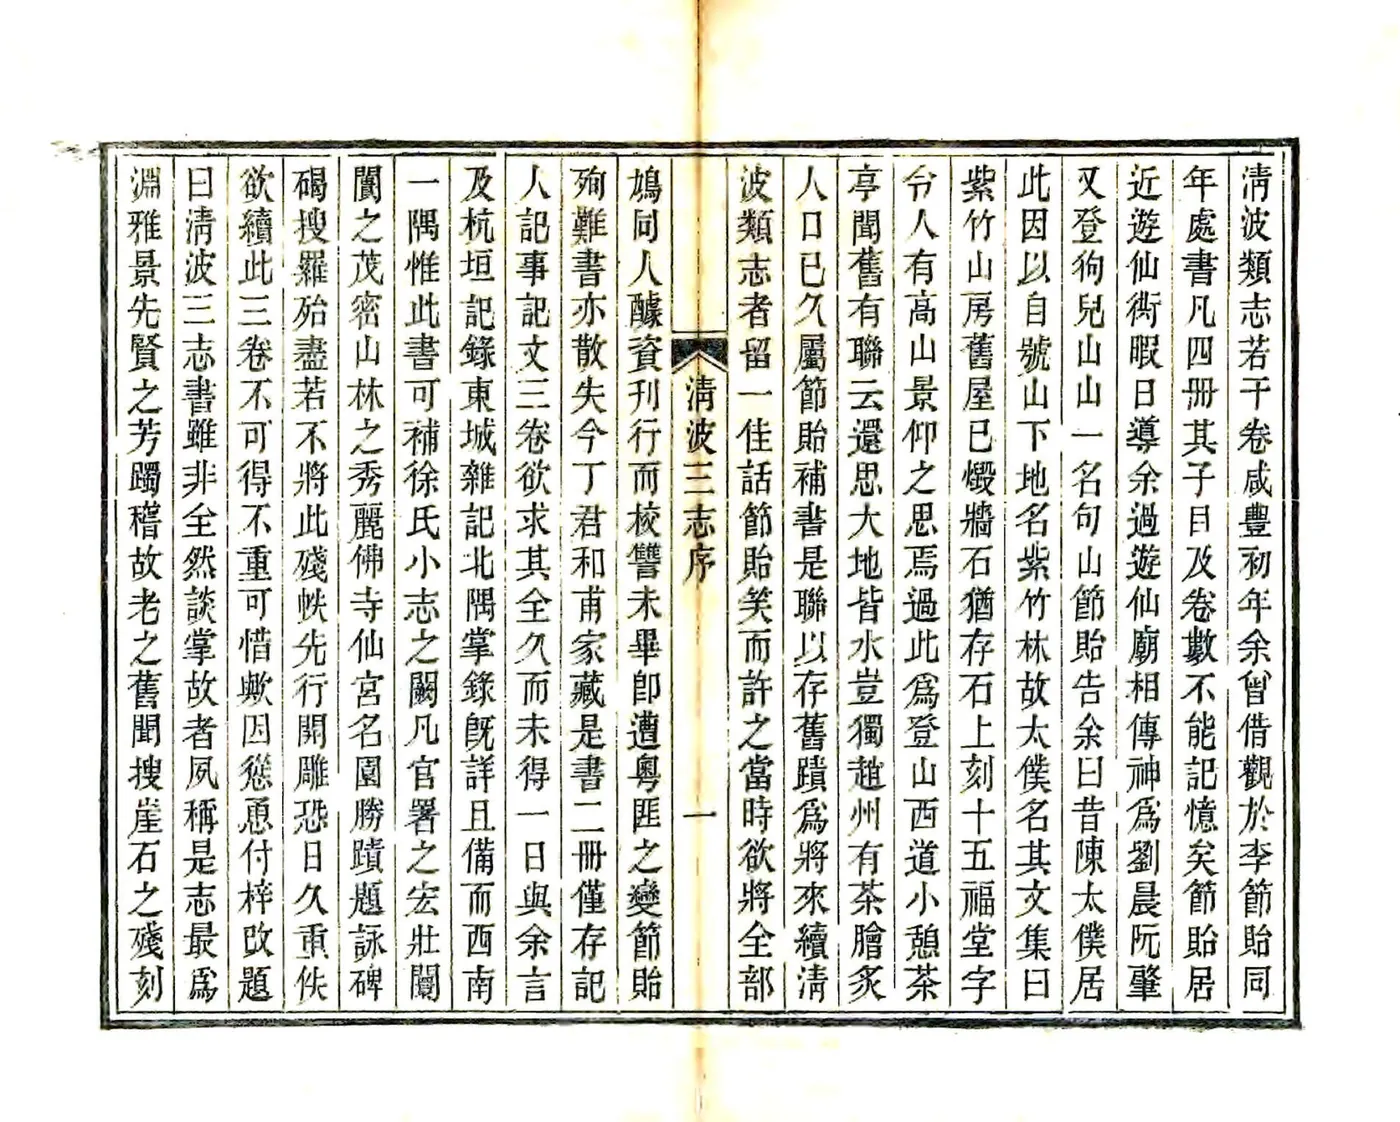 淸波類志若干卷咸豐初年余曾借觀於李節貽同
年處書凡四冊其子目及卷數不能記憶矣節貽居
近遊仙衖暇日導余過遊仙廟相傳神爲劉晨阮肇
又登狗兒山山一名句山節貽告余曰昔陳太僕居
此因以自號山下地名紫竹林故太僕名其文集曰
紫竹山房舊屋已燬牆石猶存石上刻十五福堂字
令人有高山景仰之思焉過此爲登山西道小憩茶
亭聞舊有聯云還思大地皆水豈獨趙州有茶膾炙
人口已久屬節貽補書是聯以存舊蹟爲將來續淸
波類志者留一佳話節貽笑而許之當時欲將全部
淸波三志序
一
鳩同人醵資刊行而校讐未畢卽遭粵匪之變節貽
殉難書亦散失今丁君和甫家藏是書二冊僅存記
人記事記文三卷欲求其全久而未得一日與余言
及杭垣記錄東城雜記北隅掌錄旣詳且備而西南
一隅惟此書可補徐氏小志之闕凡官署之宏壯闤
闠之茂密山林之秀麗佛寺仙宮名園勝蹟題詠碑
碣搜羅殆盡若不將此殘帙先行開雕恐日久重佚
欲續此三卷不可得不重可惜歟因慫恿付梓改題
曰淸波三志書雖非全然談掌故者夙稱是志最爲
淵雅景先賢之芳躅稽故老之舊聞搜崖石之殘刻